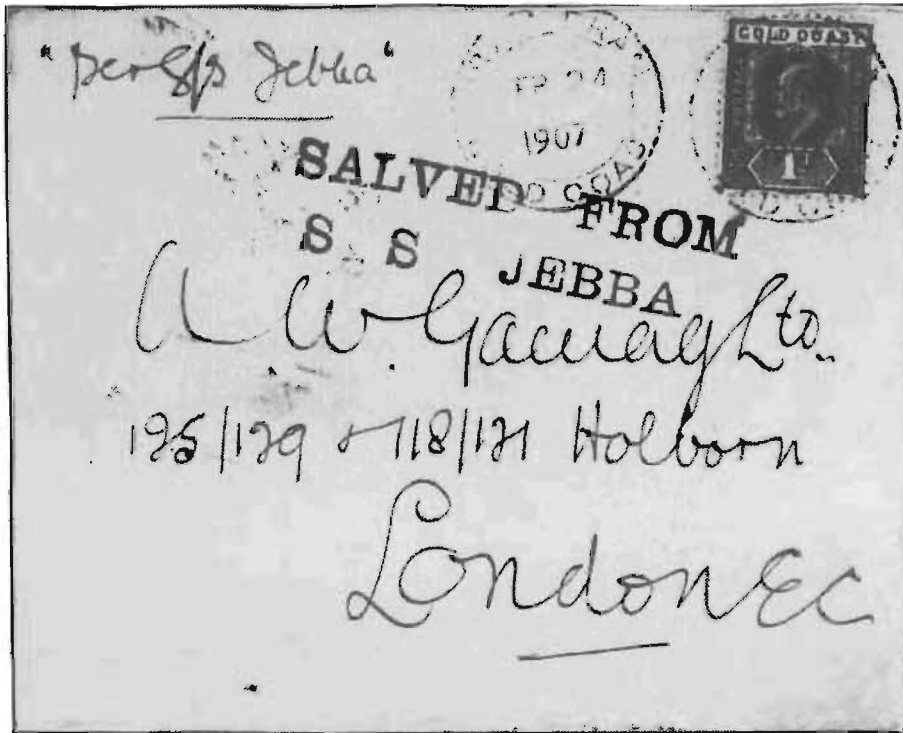 "Per S/S Jebba"
FE 24
1907
GOLD COAST
1D
SALVED FROM
S S JEBBA
A. W. Gamage Ltd.
125/129 & 118/121 Holborn
London EC